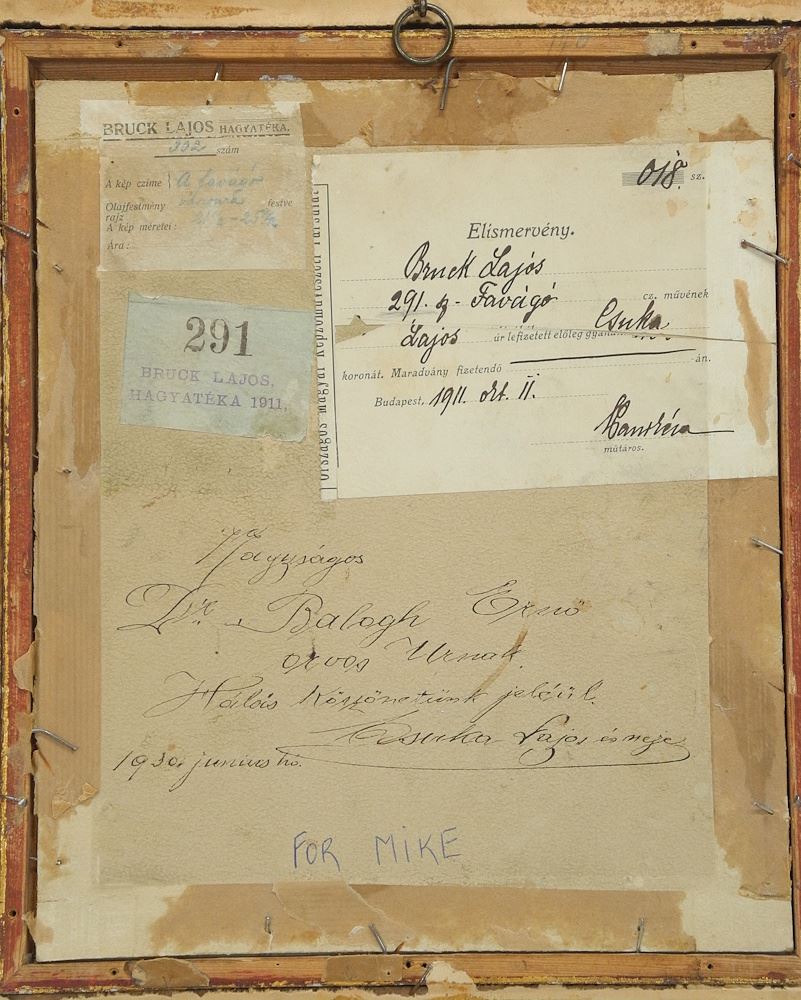 BRUCK LAJOS HAGYATÉKA.
332 szám
A kép czime } A favágó
Olajfestmény festve
rajz
A kép méretei :
Ára :
291
BRUCK LAJOS,
HAGYATÉKA 1911,
Országos Magyar Képzőművészeti Társulat
018. sz.
Elismervény.
Bruck Lajós
291. Favágó cz. művének
Csuka
Lajos úr lefizetett előleg gyanánt
koronát. Maradvány fizetendő án.
Budapest, 1911. okt. 11.
műtáros.
Nagyságos
Dr. Balogh Ernő
orvos Urnak.
Hálás Köszönetünk jeléül.
Csuka Lajos és neje
1930. junius hó.
FOR MIKE